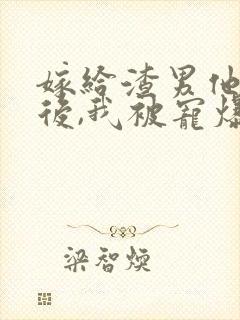 嫁给渣男他
后,我被宠爆
梁智煐